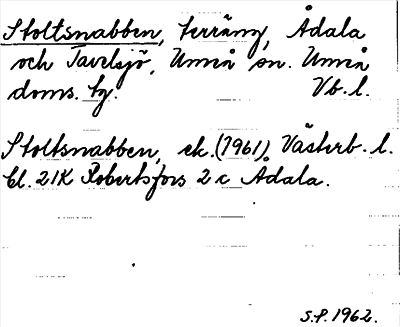 Stoltsnabben, terräng, Ådala
och Tavelsjö, Umeå sn. Umeå
doms. hg. Vb. l.
Stoltsnabben, ek. (1961) Västerb. l.
bl. 21K Robertsfors 2 c Ådala.
S.P. 1962.